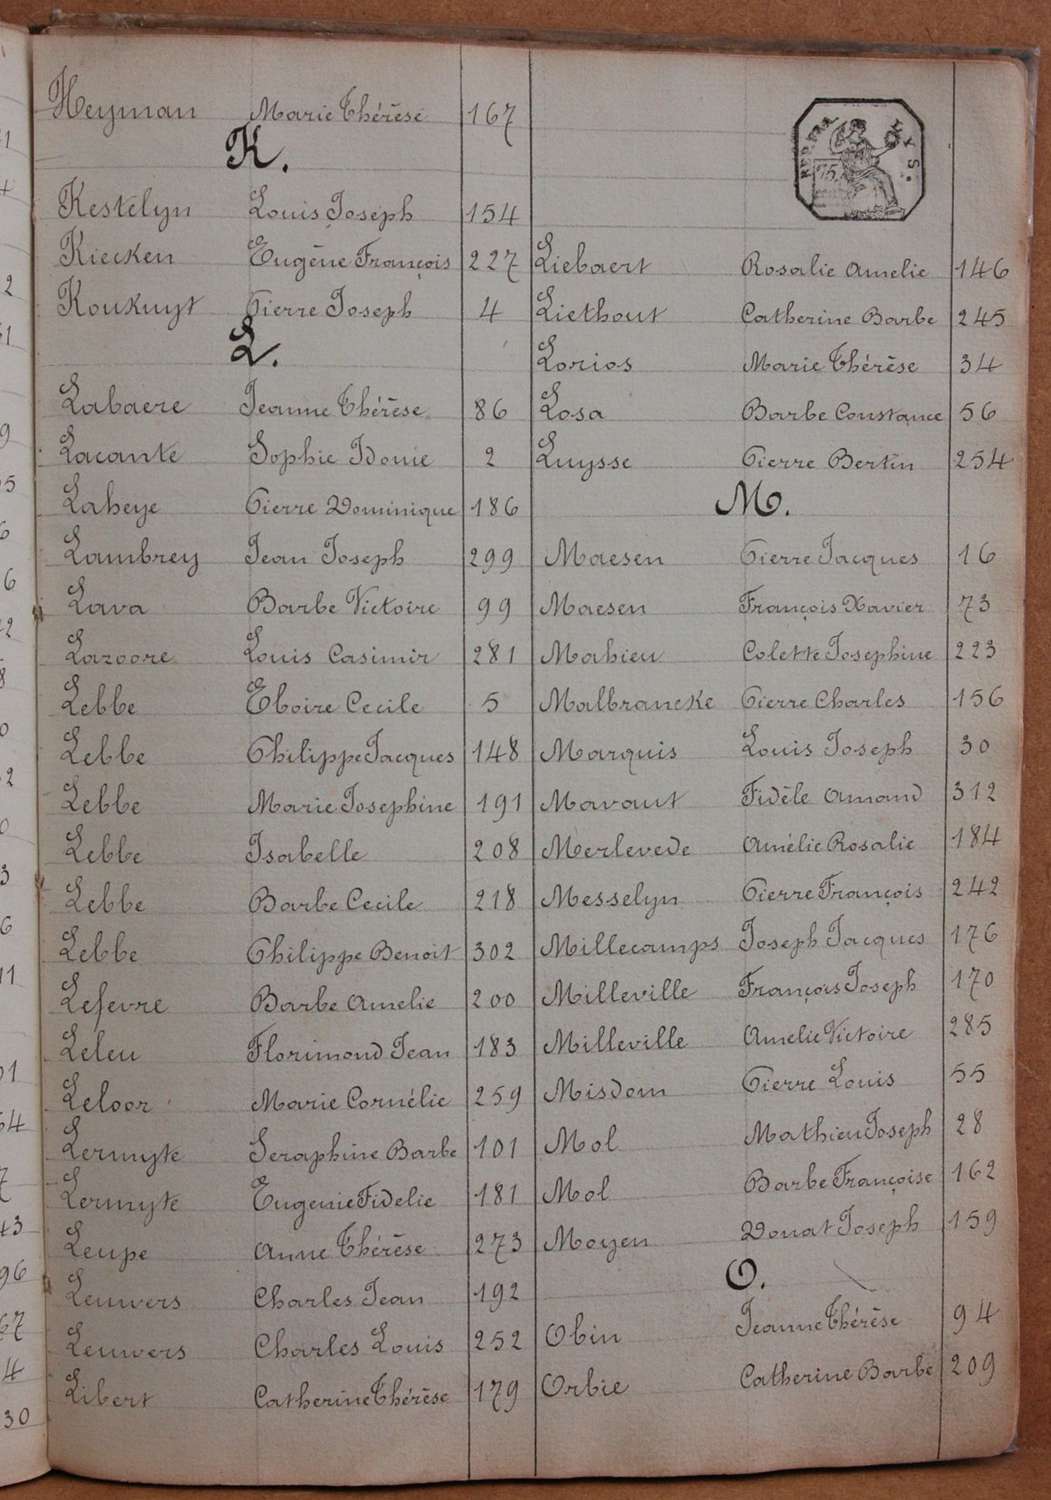 Heyman Marie Thérèse 167
K.
Kestelyn Louis Joseph 154
Kiecken Eugène François 227
Koukuyt Pierre Joseph 4
L.
Labaere Jeanne Thérèse 86
Lacante Sophie Idonie 2
Laheye Pierre Dominique 186
Lambrey Jean Joseph 299
Lava Barbe Victoire 99
Lazoore Louis Casimir 281
Lebbe Eloire Cecile 5
Lebbe Philippe Jacques 148
Lebbe Marie Josephine 191
Lebbe Isabelle 208
Lebbe Barbe Cecile 218
Lebbe Philippe Benoit 302
Lefevre Barbe Amelie 200
Leleu Florimond Jean 183
Leloor Marie Cornélie 259
Lermyte Seraphine Barbe 101
Lermyte Eugenie Fidelie 181
Leupe Anne Thérèse 273
Leuwers Charles Jean 192
Leuwers Charles Louis 252
Libert Catherine Thérèse 179
Liebaert Rosalie Amelie 146
Liethout Catherine Barbe 245
Lorios Marie Thérèse 34
Losa Barbe Constance 56
Luysse Pierre Bertin 254
M.
Maesen Pierre Jacques 16
Maesen François Xavier 73
Mahieu Colette Josephine 223
Malbrancke Pierre Charles 156
Marquis Louis Joseph 30
Mavaut Fidèle Amand 312
Merlevede Amélie Rosalie 184
Messelyn Pierre François 242
Millecamps Joseph Jacques 176
Milleville François Joseph 170
Milleville Amelie Victoire 285
Misdom Pierre Louis 55
Mol Mathieu Joseph 28
Mol Barbe Françoise 162
Moyen Donat Joseph 159
O.
Obin Jeanne Thérèse 94
Orbie Catherine Barbe 209